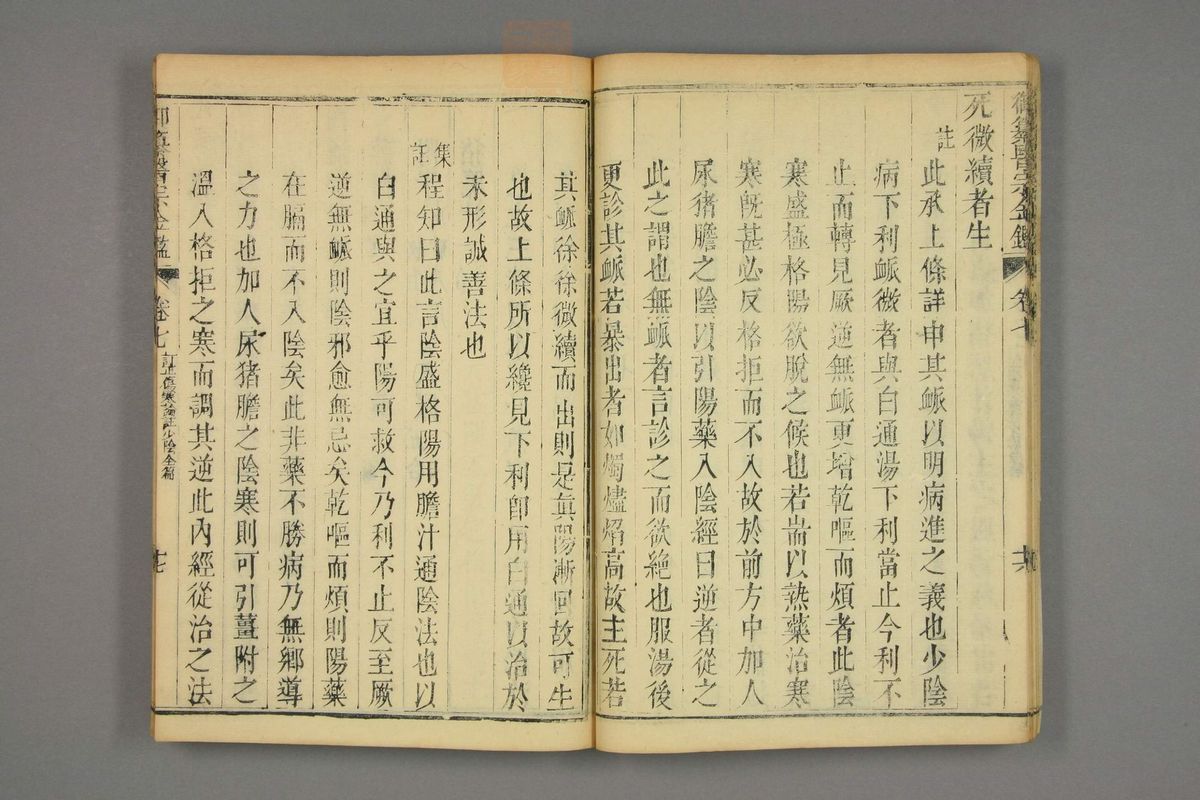 御纂醫宗金鑑 卷七 共
死微續者生
註
此承上條詳申其脈以明病進之義也少陰
病下利脈微者與白通湯下利當止今利不
止而轉見厥逆無脈更增乾嘔而煩者此陰
寒盛極格陽欲脫之候也若耑以熱藥治寒
寒旣甚必反格拒而不入故於前方中加人
尿猪膽之陰以引陽藥入陰經曰逆者從之
此之謂也無脈者言診之而欲絶也服湯後
更診其脈若暴出者如燭燼焰高故主死若
其脈徐徐微續而出則是眞陽漸囘故可生
也故上條所以纔見下利卽用白通以治於
未形誠善法也
集註
程知曰此言陰盛格陽用膽汁通陰法也以
白通與之宜乎陽可救今乃利不止反至厥
逆無脈則陰邪愈無忌矣乾嘔而煩則陽藥
在膈而不入陰矣此非藥不勝病乃無鄉導
之力也加人尿猪膽之陰寒則可引薑附之
溫入格拒之寒而調其逆此內經從治之法
御纂醫宗金鑑 卷七 訂正傷寒論註少陰全篇